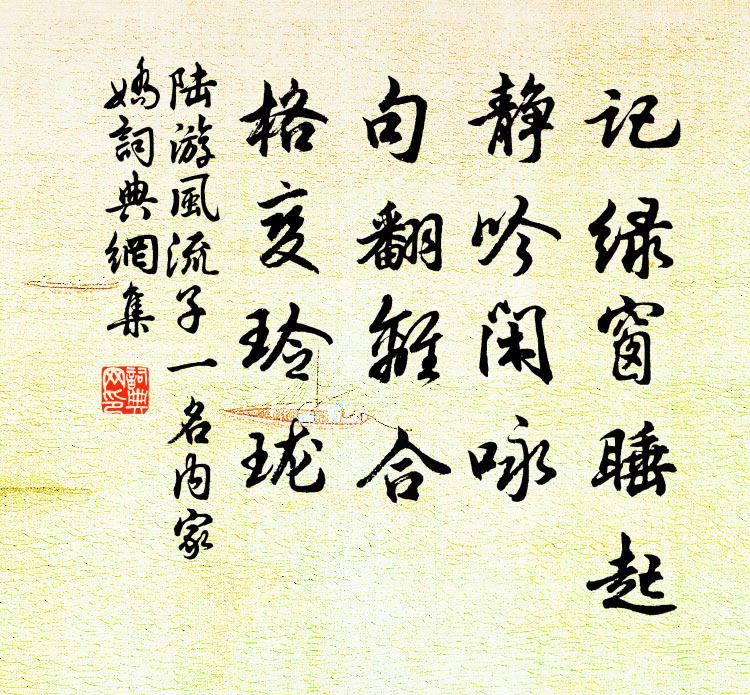 记绿窗睡起
静吟闲咏
句翻离合
格变玲珑
陆游風流子一名内家
嬌詞典網集
詞典网印